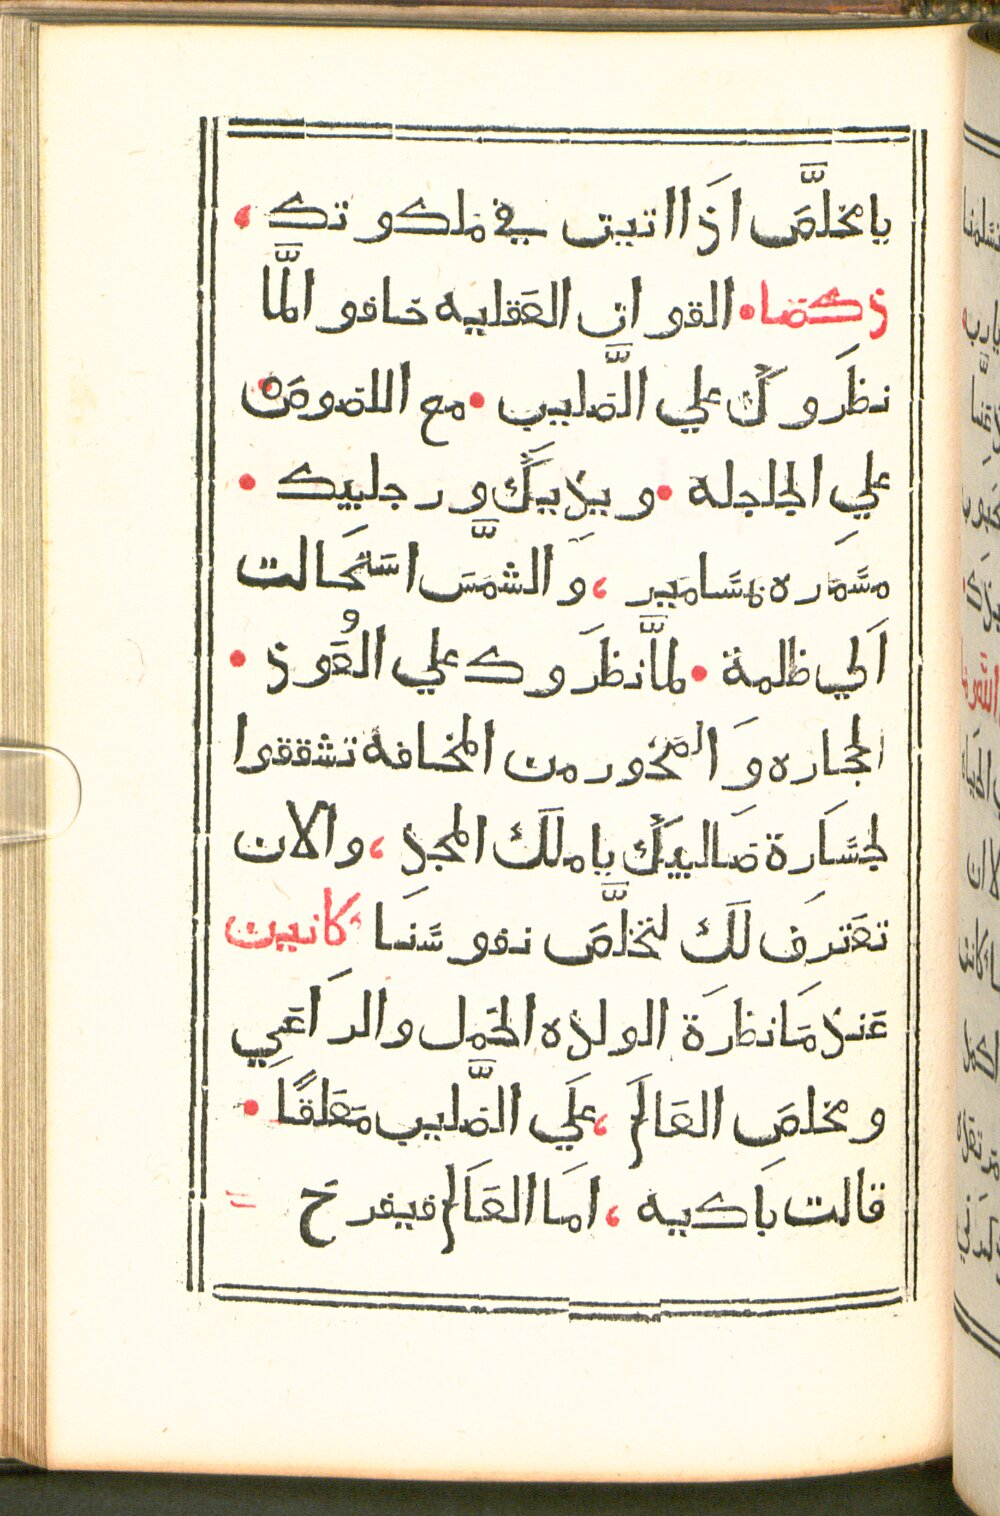 يا مخلَّصَ اذَا اتيت في ملكوتك،
ذكصا• القوات العَقليه خافوا لمَّا
نظَروكَ علي الصَّليب• مع اللصومَن•
علي الجلجلة• ويدَيكَ ورجلييك•
مسَّمَره بمسَّامير، وَالشمَّسَ استَحَالت
اَلي ظلمة• لمَّا نظَروك علي العُود•
الحجَاره وَالصَّخور من المخافه تشققوا
لجسَّارة صَالبيكَ يا ملكَ المجدِ، والان
نعَترفَ لكَ لتخلَّصَ نفوسَّنا كانين
عَندمَا نظرَة الولده الحَمل والراعَي
ومخلصَ العَالم، علَي الصَّليب معَلقًا•
قالت بَاكيه، امَا العَالم فيفرحَ =